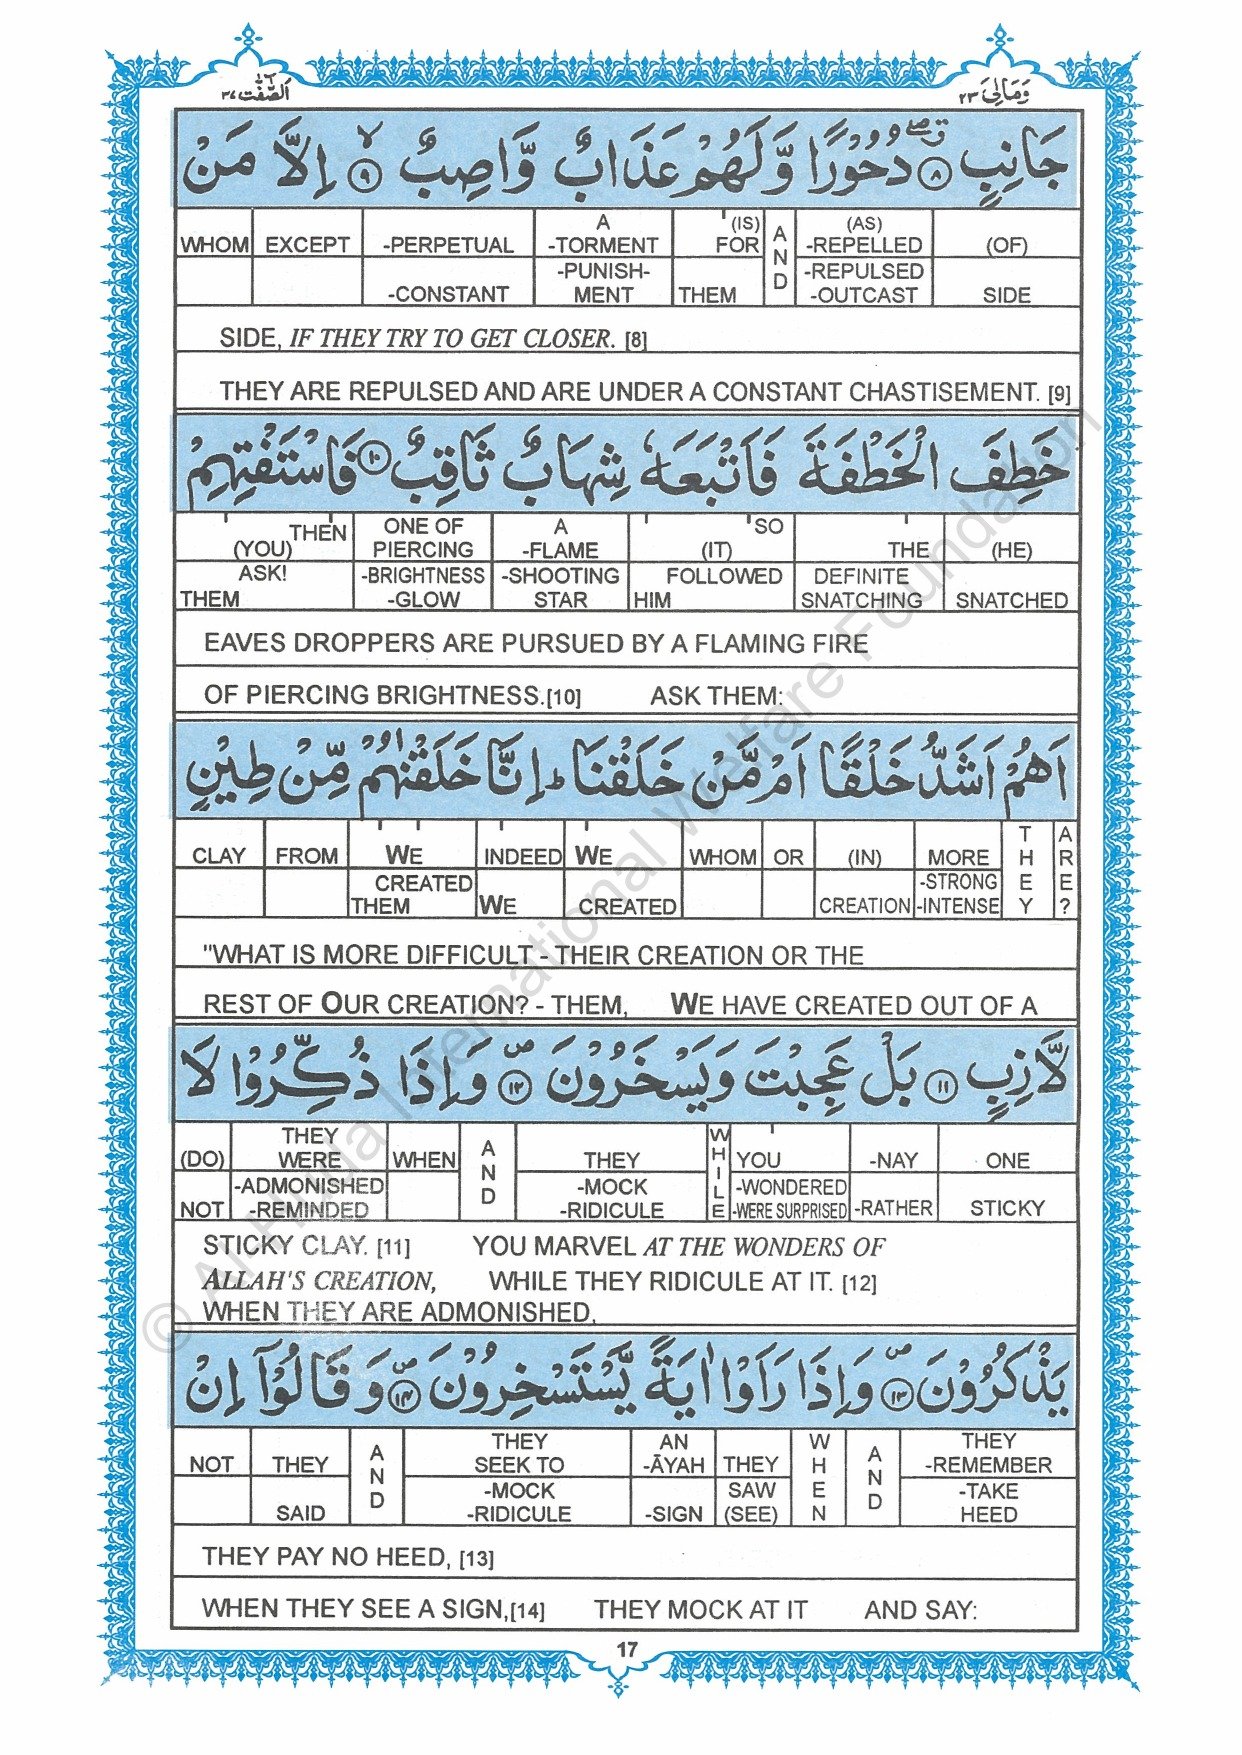 اَلصّٰٓفّٰت ٣٧
وَمَالِیَ ٢٣
جَانِبٍ ۝٨ دُحُوْرًا وَّلَهُمْ عَذَابٌ وَّاصِبٌ ۝٩ اِلَّا مَنْ
WHOM EXCEPT -PERPETUAL A -TORMENT (IS) FOR AND (AS) -REPELLED (OF)
-CONSTANT -PUNISH- MENT THEM -REPULSED -OUTCAST SIDE
SIDE, IF THEY TRY TO GET CLOSER. [8]
THEY ARE REPULSED AND ARE UNDER A CONSTANT CHASTISEMENT. [9]
خَطِفَ الْخَطْفَةَ فَاَتْبَعَهٗ شِهَابٌ ثَاقِبٌ ۝١٠ فَاسْتَفْتِهِمْ
THEN (YOU) ONE OF PIERCING A -FLAME SO (IT) THE (HE)
ASK! THEM -BRIGHTNESS -GLOW -SHOOTING STAR FOLLOWED HIM DEFINITE SNATCHING SNATCHED
EAVES DROPPERS ARE PURSUED BY A FLAMING FIRE
OF PIERCING BRIGHTNESS.[10] ASK THEM:
اَهُمْ اَشَدُّ خَلْقًا اَمْ مَّنْ خَلَقْنَا ؕ اِنَّا خَلَقْنٰهُمْ مِّنْ طِيْنٍ
CLAY FROM WE INDEED WE WHOM OR (IN) MORE THEY ARE?
CREATED THEM WE CREATED CREATION -STRONG -INTENSE
"WHAT IS MORE DIFFICULT - THEIR CREATION OR THE
REST OF OUR CREATION? - THEM, WE HAVE CREATED OUT OF A
لَّازِبٍ ۝١١ بَلْ عَجِبْتَ وَيَسْخَرُوْنَ ۝١٢ وَاِذَا ذُكِّرُوْا لَا
(DO) THEY WERE WHEN AND THEY WHILE YOU -NAY ONE
NOT -ADMONISHED -REMINDED -MOCK -RIDICULE -WONDERED -WERE SURPRISED -RATHER STICKY
STICKY CLAY. [11] YOU MARVEL AT THE WONDERS OF
ALLAH'S CREATION, WHILE THEY RIDICULE AT IT. [12]
WHEN THEY ARE ADMONISHED,
يَذْكُرُوْنَ ۝١٣ وَاِذَا رَاَوْا اٰيَةً يَّسْتَسْخِرُوْنَ ۝١٤ وَقَالُوْٓا اِنْ
NOT THEY AND THEY SEEK TO AN -ĀYAH THEY WHEN AND THEY -REMEMBER
SAID -MOCK -RIDICULE -SIGN SAW (SEE) -TAKE HEED
THEY PAY NO HEED, [13]
WHEN THEY SEE A SIGN,[14] THEY MOCK AT IT AND SAY:
17
© Al-Huda International Welfare Foundation